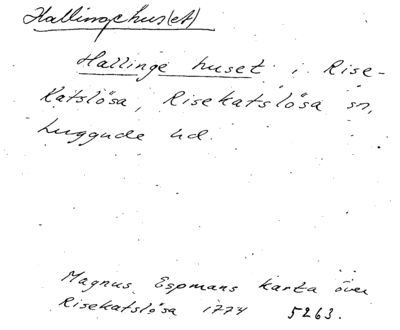 Hallingehus(et)
Hallinge huset i Rise-
Katslösa, Risekatslösa sn,
Luggude hd.
Magnus Espmans karta över
Risekatslösa 1774 5263.